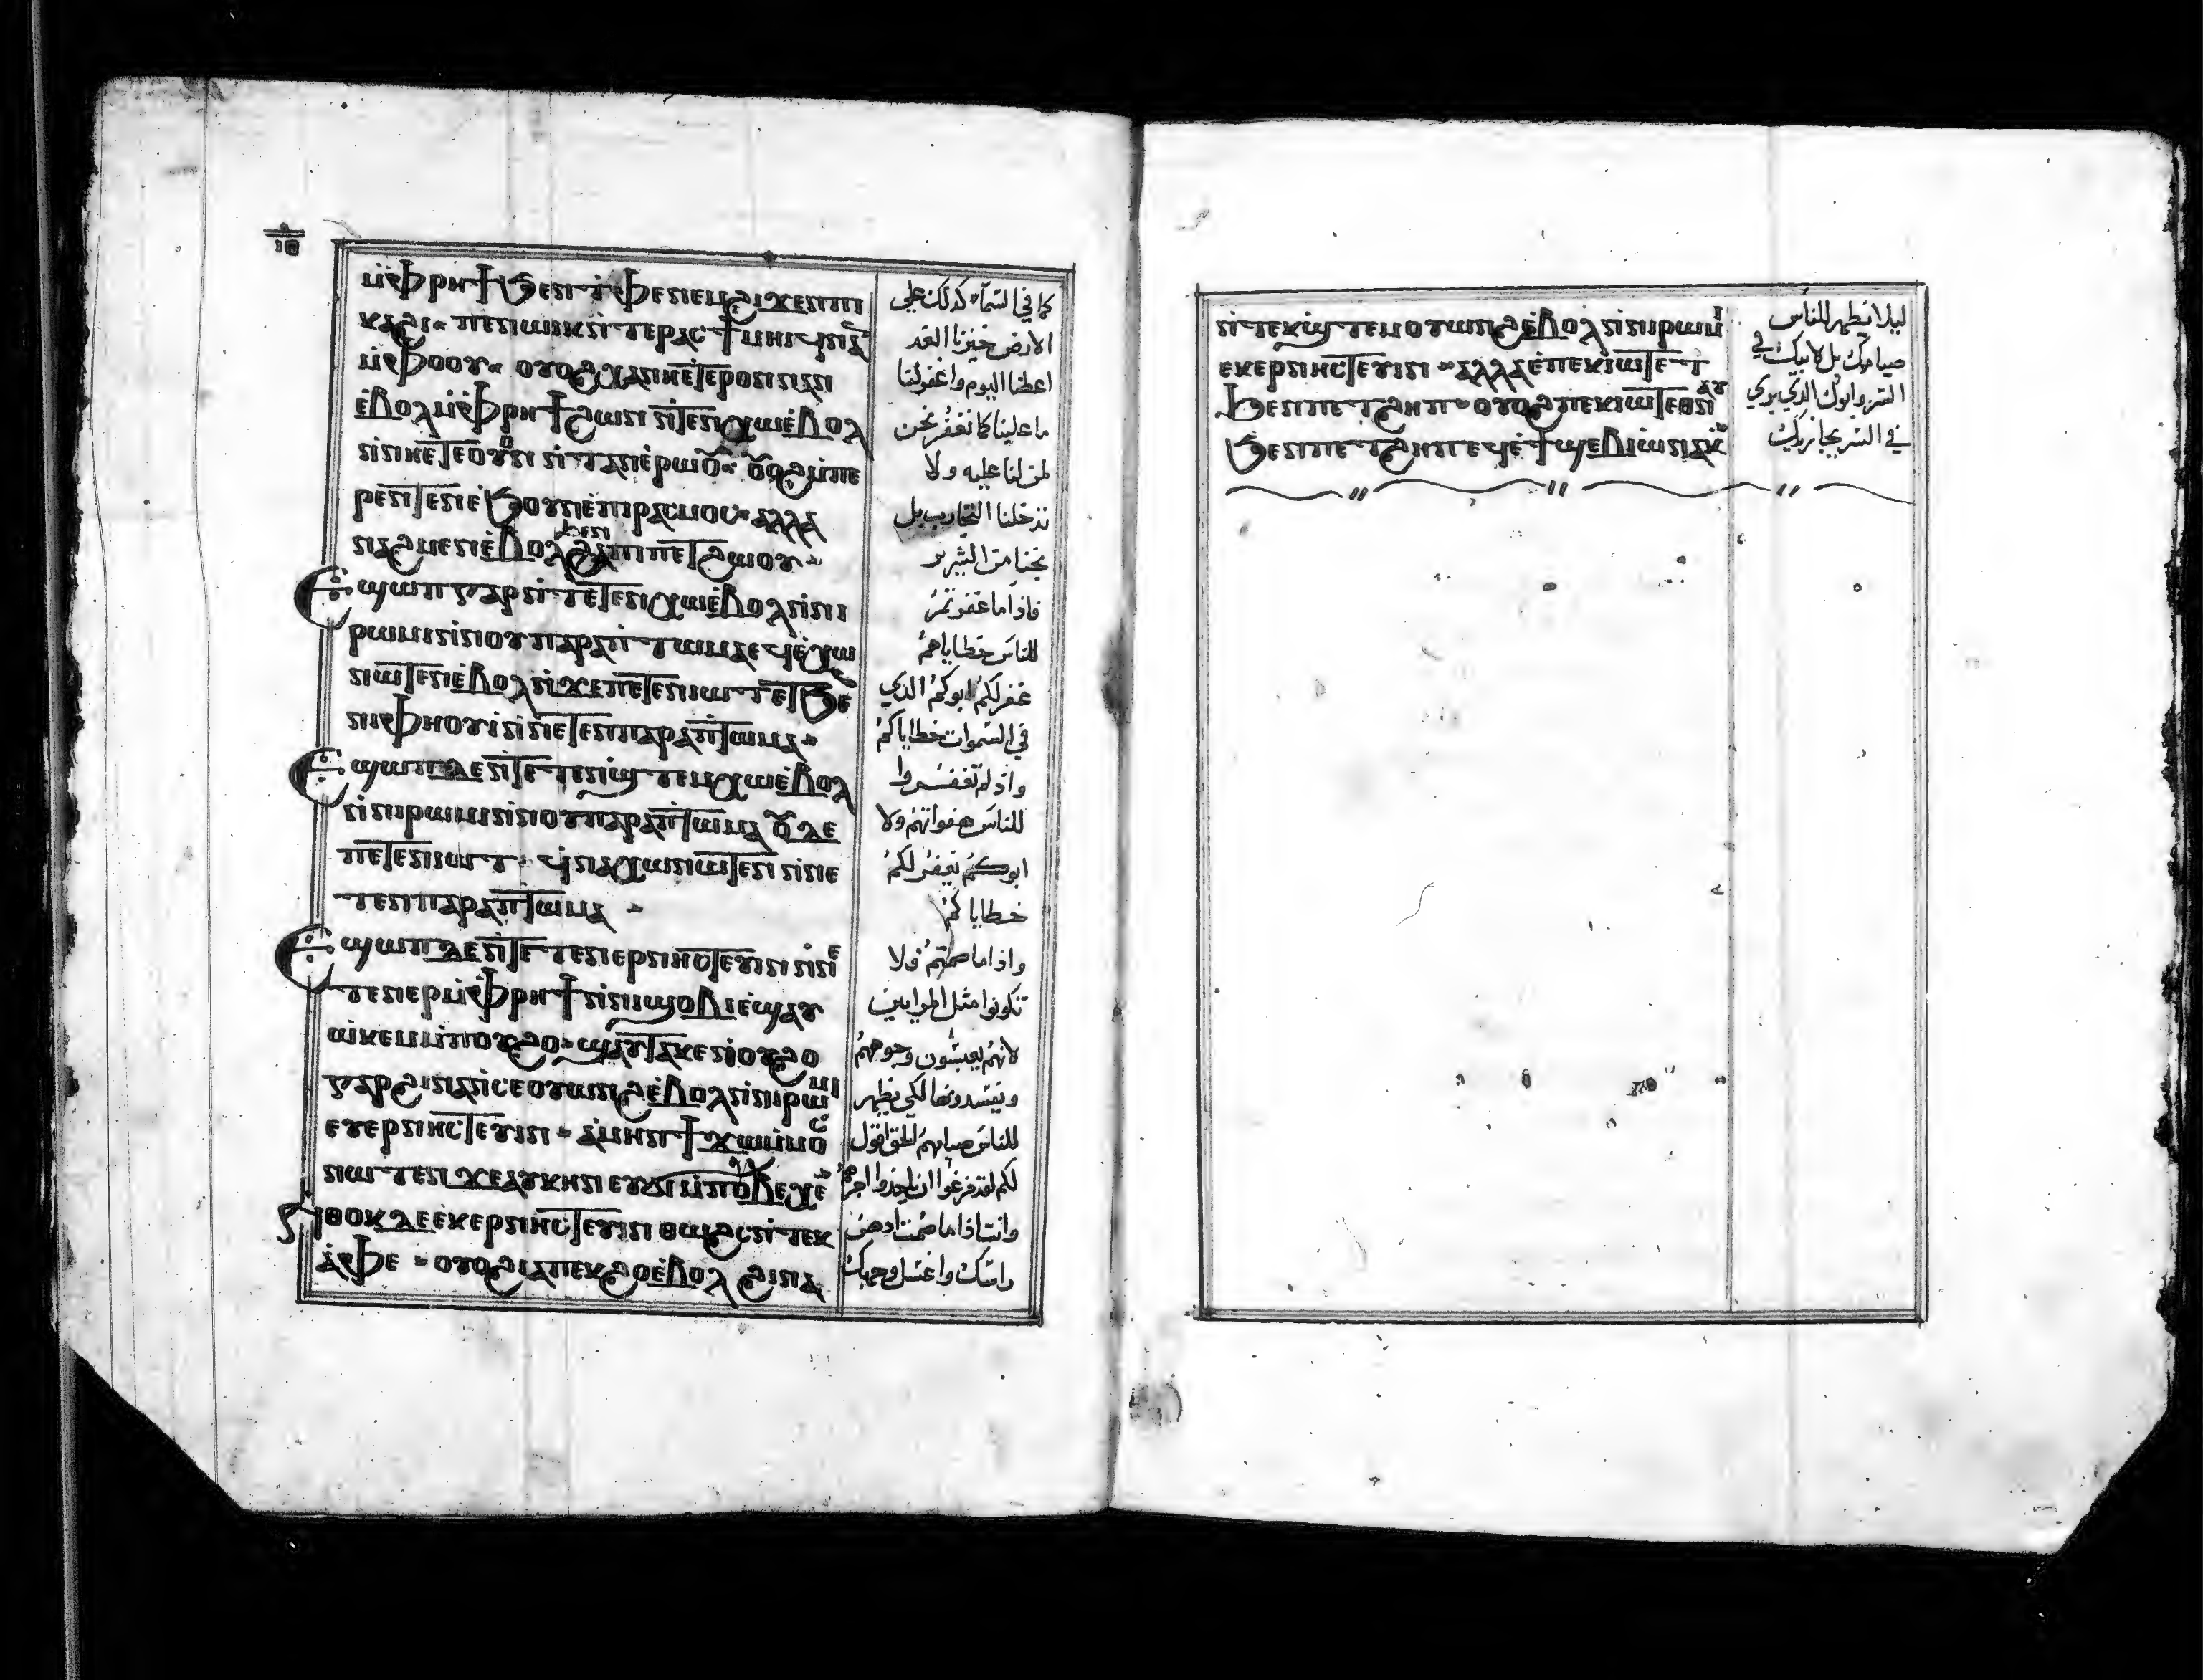 ⲙ̀ⲫⲣⲏϯ ϧⲉⲛ ⲧ̀ⲫⲉ ⲛⲉⲙ ϩⲓϫⲉⲛ ⲡⲓ
ⲕⲁϩⲓ ⲡⲉⲛⲱⲓⲕ ⲛ̀ⲧⲉ ⲣⲁⲥϯ ⲙⲏⲓϥ ⲛⲁⲛ
ⲙ̀ⲫⲟⲟⲩ ⲟⲩⲟϩ ⲭⲁ ⲛⲏⲉⲧⲉⲣⲟⲛ ⲛⲁⲛ
ⲉ̀ⲃⲟⲗ ⲙ̀ⲫⲣⲏϯ ϩⲱⲛ ⲛ̀ⲧⲉⲛⲭⲱ ⲉ̀ⲃⲟⲗ
ⲛ̀ⲛⲏⲉⲧⲉⲟⲩⲟⲛ ⲛ̀ⲧⲁⲛ ⲉ̀ⲣⲱⲟⲩ ⲟⲩⲟϩ ⲙ̀ⲡⲉ
ⲣⲉⲛⲧⲉⲛ ⲉ̀ϧⲟⲩⲛ ⲉ̀ⲡⲓⲣⲁⲥⲙⲟⲥ ⲁⲗⲗⲁ
ⲛⲁϩⲙⲉⲛ ⲉ̀ⲃⲟⲗϩⲁ ⲡⲓⲡⲉⲧϩⲱⲟⲩ
Ⲉϣⲱⲡ ⲅⲁⲣ ⲛ̀ⲧⲉⲧⲉⲛⲭⲱ ⲉ̀ⲃⲟⲗ ⲛ̀ⲛⲓ
ⲣⲱⲙⲓ ⲛ̀ⲛⲟⲩⲡⲁⲣⲁⲡⲧⲱⲙⲁ ⲉϥⲉ̀ⲭⲱ
ⲛⲱⲧⲉⲛ ⲉ̀ⲃⲟⲗ ⲛ̀ϫⲉ ⲡⲉⲧⲉⲛⲓⲱⲧ ⲉⲧϧⲉ
ⲛⲓⲫⲏⲟⲩⲓ̀ ⲛ̀ⲛⲉⲧⲉⲛⲡⲁⲣⲁⲡⲧⲱⲙⲁ
Ⲉϣⲱⲡ ⲇⲉ ⲛ̀ⲧⲉⲧⲉⲛϣ̀ⲧⲉⲙⲭⲱ ⲉ̀ⲃⲟⲗ
ⲛ̀ⲛⲓⲣⲱⲙⲓ ⲛ̀ⲛⲟⲩⲡⲁⲣⲁⲡⲧⲱⲙⲁ ⲟⲩⲇⲉ
ⲡⲉⲧⲉⲛⲓⲱⲧ ϥ̀ⲛⲁⲭⲱ ⲛⲱⲧⲉⲛ ⲛ̀ⲛⲉ
ⲧⲉⲛⲡⲁⲣⲁⲡⲧⲱⲙⲁ
Ⲉϣⲱⲡ ⲇⲉ ⲛ̀ⲧⲉⲧⲉⲛⲉⲣⲛⲏⲥⲧⲉⲩⲓⲛ ⲛ̀ⲛⲉ
ⲧⲉⲛⲉⲣ ⲙ̀ⲫⲣⲏϯ ⲛ̀ⲛⲓϣⲟⲃⲓ ⲉ̀ϣⲁⲩ
ⲱ̀ⲕⲉⲙ ⲙ̀ⲡⲟⲩϩⲟ ϣⲁⲩⲧⲁⲕⲉ ⲛ̀ⲟⲩϩⲟ
ⲅⲁⲣ ϩⲓⲛⲁ ⲛ̀ⲥⲉⲟⲩⲱⲛϩ ⲉ̀ⲃⲟⲗ ⲛ̀ⲛⲓⲣⲱⲙⲓ
ⲉⲩⲉⲣⲛⲏⲥⲧⲉⲩⲓⲛ ⲁ̀ⲙⲏⲛ ϯϫⲱ ⲙ̀ⲙⲟⲥ
ⲛⲱⲧⲉⲛ ϫⲉ ⲁⲩⲕⲏⲛ ⲉⲩϭⲓ ⲙ̀ⲡⲟⲩⲃⲉⲭⲉ
Ⲛ̀ⲑⲟⲕ ⲇⲉ ⲉⲕⲉⲣⲛⲏⲥⲧⲉⲩⲓⲛ ⲑⲱϩⲥ ⲛ̀ⲧⲉⲕ
ⲁ̀ⲫⲉ ⲟⲩⲟϩ ⲓⲁ ⲡⲉⲕϩⲟ ⲉ̀ⲃⲟⲗ ϩⲓⲛⲁ
كما في السمآء كدلك علي
الارض خبزنا الغد
اعطنا اليوم واغفر لنا
ما علينا كما نغفر نحن
لمن لنا عليه ولا
تدخلنا التجارب بل
نجنا من الشرير
فاذا ما غفرتم
للناس خطاياهم
غفر لكم ابوكم الدي
في السموات خطاياكم
واذ لم تغفروا
للناس هفواتهم ولا
ابوكم يغفر لكم
خطاياكم
واذا ما صمتم فلا
تكونوا مثل المرايين
لانهم يعبسون وجوههم
ويفسدونها لكي يظهر
للناس صيامهم الحق اقول
لكم لقد فرغوا ان ياخدوا اجرهم
وانت اذا ما صمت ادهن
راسك واغسل وجهك
ⲛ̀ⲧⲉⲕϣ̀ⲧⲉⲙⲟⲩⲱⲛϩ ⲉ̀ⲃⲟⲗ ⲛ̀ⲛⲓⲣⲱⲙⲓ
ⲉⲕⲉⲣⲛⲏⲥⲧⲉⲩⲓⲛ ⲁⲗⲗⲁ ⲉ̀ⲡⲉⲕⲓⲱⲧ ⲉⲧ
ϧⲉⲛ ⲡⲉⲧϩⲏⲡ ⲟⲩⲟϩ ⲡⲉⲕⲓⲱⲧ ⲉⲑⲛⲁⲩ
ϧⲉⲛ ⲡⲉⲧϩⲏⲡ ⲉϥⲉ̀ϯϣⲉⲃⲓⲱ̀ ⲛⲁⲕ
ليلا يظهر للناس
صيامك بل لابيك في
السر وابوك الدي يري
في السر يجازيك